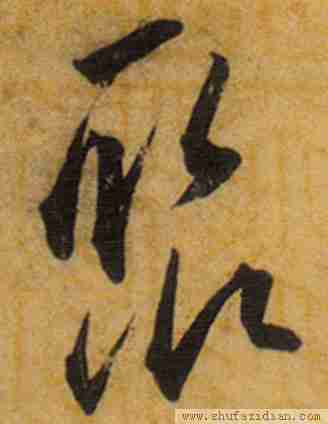 聚
www.shufazidian.com